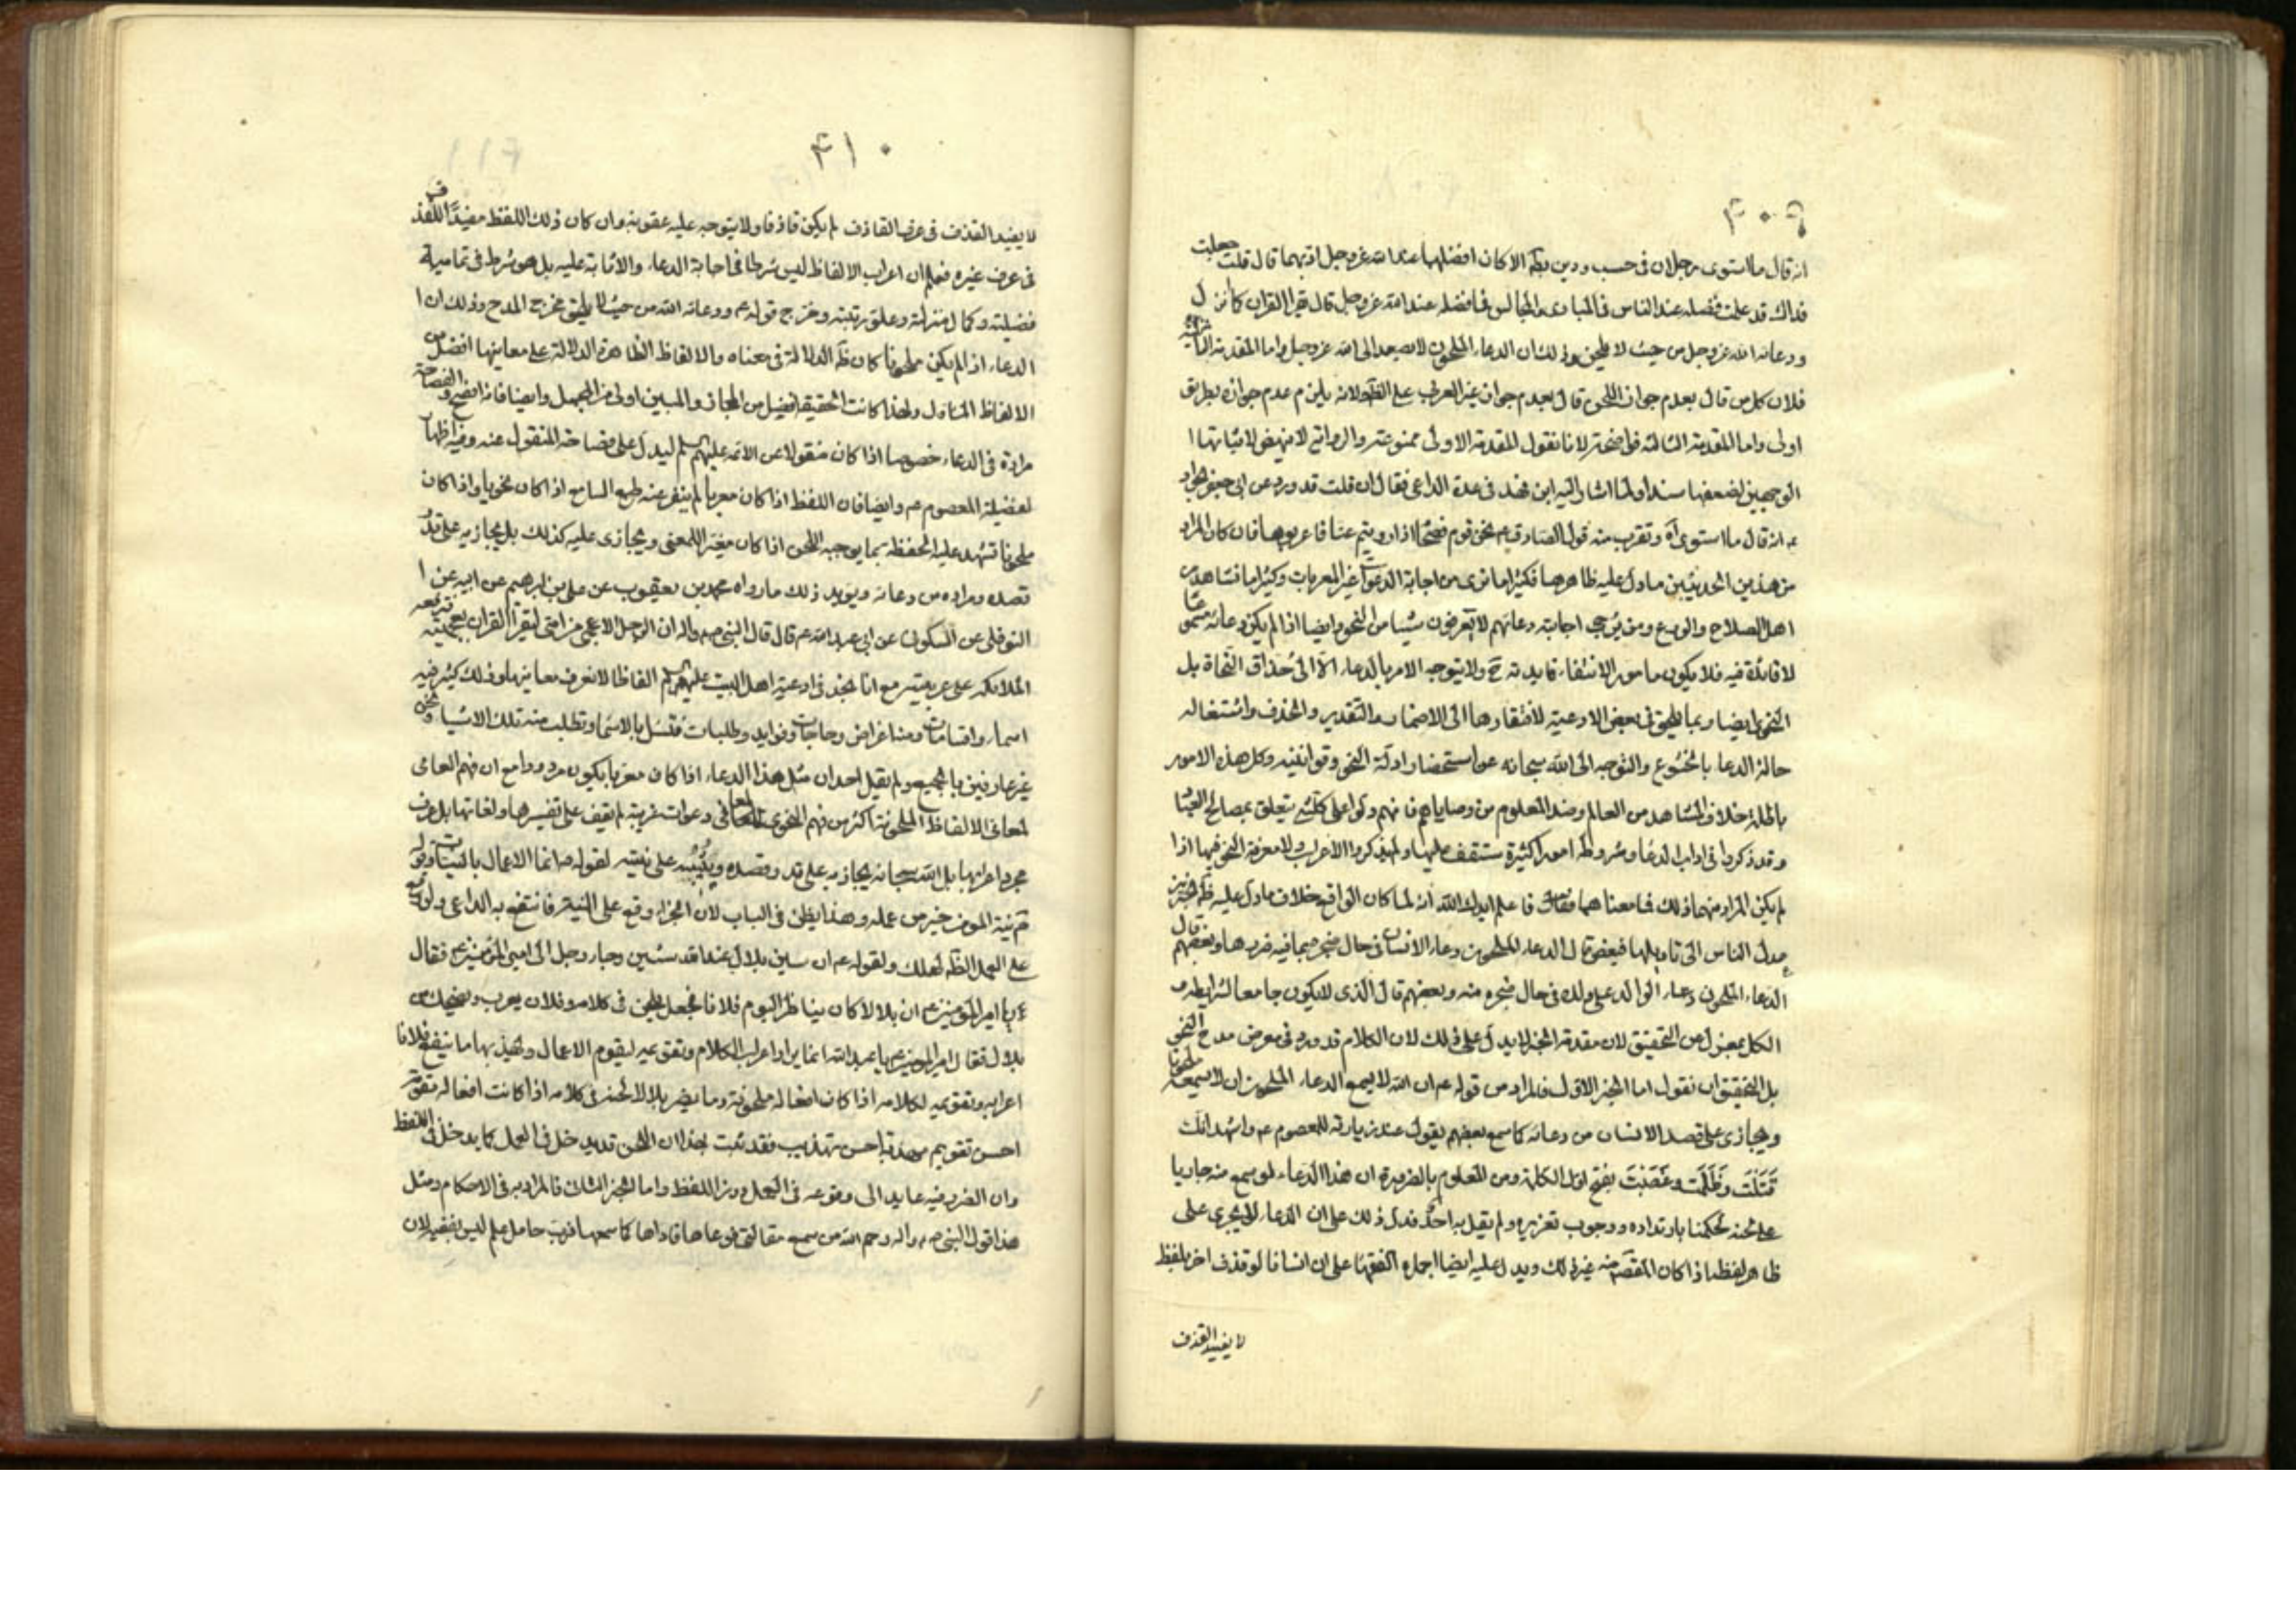 ۴۰۹
انه قال ما استوى رجلان فى حسب ودين قط الا كان افضلهما عند الله عز وجل ادبهما قال قلت جعلت
فداك قد علمت فضله عند الناس فى النادى والمجالس فما فضله عند الله عز وجل قال بقراءة القران كما نزل
ودعائه الله عز وجل من حيث لا يلحن وذلك ان الدعاء الملحون لا يصعد الى الله عز وجل واما المقدمة الثانية
فلان كل من قال بعدم جواز اللحن قال بعدم جواز غير العربى على الظ ولانه يلزم عدم جوازه بطريق
اولى واما المقدمة الثالثة فواضحة لانا نقول المقدمة الاولى ممنوعة والرواية لا تنهض لاثباتها ا
الوجهين لضعفها سندا ولما اشار اليه ابن فهد فى عدة الداعى فقال ان قلت قد ورد عن ابى جعفر الجواد
ع انه قال ما استوى آه وتقرب منه قول الصادق ع نحن قوم فصحاء اذا رويتم عنا فاعربوها فان كان المراد
من هذين الحديثين ما دل عليه ظاهرهما فكثيرا ما نرى من اجابة الدعوات غير المعربات وكثيرا ما نشاهد من
اهل الصلاح والورع ومن يرجى اجابة دعائهم لا يعرفون شيئا من النحو وايضا اذا لم يكن دعائه مسموعا
لا فائدة فيه فلا يكون مامورا لانتفاء فايدته ح ولا يتوجه الامر بالدعاء الا الى حذاق النحاة بل
النحوى ايضا ربما يلحن فى بعض الادعية لافتقارها الى الاضمار والتقدير والحذف واشتغاله
حالة الدعا بالخشوع والتوجه الى الله سبحانه عن استحضار ادلة النحو وقوانينه وكل هذه الامور
باطلة خلاف المشاهد من العالم وضد المعلوم من وصاياهم فانهم دلوا على كل شى يتعلق بمصالح العباد
وقد ذكروا فى اداب الدعا وشروطه امورا كثيرة ستقف عليها ولم يذكروا الاعراب ولا معرفة النحو فيها اذا
لم يكن المراد منهما ذلك فما معناهما فقال فاعلم ايدك الله انه لما كان الواقع خلاف ما دل عليه ظ الخبرين
عدل الناس الى تاويلها فبعض قال الدعاء الملحون دعاء الانسان فى حال ضجره بما فيه ضررها وبعضهم قال
الدعاء الملحون دعاء الوالد على ولده فى حال ضجره منه وبعضهم قال الذى لا يكون جامعا لشرايطه و
الكل بمعزل عن التحقيق لان مقدمة الخبر لا يدل على ذلك لان الكلام قد ورد فى معرض مدح النحو
بل التحقيق ان نقول اما الخبر الاول فالمراد من قوله ع ان الله لا يسمع الدعاء الملحون ان لا يسمعه ملحونا
ويجازى على قصد الانسان من دعائه كما سمع بعضهم يقول عند زيارته للمعصوم ع واشهد انك
قَتَلْتَ وظَلَمْتَ وغَصَبْتَ بفتح اول الكلمة ومن المعلوم بالضرورة ان هذا الدعاء لو سمع منه جاريا
على لحنه لحكمنا بارتداده ووجوب تعزيره ولم يقل به احد فدل ذلك على ان الدعاء لا يجرى على
ظاهر لفظه اذا كان المقصد منه غير ذلك ويدل عليه ايضا اجماع الفقهاء على ان انسانا لو قذف اخر بلفظ
لا يفيد القذف
۴۱۰
لا يفيد القذف فى عرف القاذف لم يكن قاذفا ولا يتوجه عليه عقوبة وان كان ذلك اللفظ مفيدا للقذف
فى عرف غيره فعلم ان اعراب الالفاظ ليس شرطا فى اجابة الدعاء والاثابة عليه بل هو شرط فى تمامية
فضيلته وكمال منزلته وعلو رتبته وخرج قوله ع ودعائه الله من حيث لا يلحن مخرج المدح وذلك ان ا
الدعاء اذا لم يكن ملحونا كان ظ الدلالة فى معناه والالفاظ الظاهرة الدلالة على معانيها افضل من
الالفاظ المتاولة ولهذا كانت الحقيقة افضل من المجاز والمبين اولى من المجمل وايضا فانه افصح والفصاحة
مرادة فى الدعاء خصوصا اذا كان منقولا عن الائمة عليهم السلم ليدل على فصاحة المنقول عنه وفيه اظهار
لفضيلة المعصوم ع وايضا فان اللفظ اذا كان معربا لم ينفر عنه طبع السامع اذا كان نحويا واذا كان
ملحونا تشهد عليه الحفظة بما يوجبه اللحن اذا كان مغيرا للمعنى ويجازى عليه كذلك بل يجازيه على قدر
قصده ومراده من دعائه ويويد ذلك ما رواه محمد بن يعقوب عن على بن ابرهيم عن ابيه عن ا
النوفلى عن السكونى عن ابى عبد الله ع قال قال النبى ص واله ان الرجل الاعجمى من امتى ليقرا القران بعجميته فترفعه
الملائكة على عربيته مع انا نجد فى ادعية اهل البيت عليهم السلم الفاظا لا نعرف معانيها وذلك كثير فيه
اسماء واقسامات ومنه اغراض وحاجات وفوايد وطلبات فنسئل بالاسما ونطلب منه تلك الاشيا ونحن
غير عارفين بالجميع ولم يقل احد ان مثل هذا الدعاء اذا كان معربا يكون مردودا مع ان فهم العامى
لمعانى الالفاظ الملحونة اكثر من فهم النحوى لمعانى دعوات غريبة لم يقف على تفسيرها ولغاتها بل عرف
مجرد اعرابها بل الله سبحانه يجازيه على قدر قصده ويثيبه على نيته لقوله ص انما الاعمال بالنيات وقوله
ص نية المومن خير من عمله وهذا نص فى الباب لان الجزاء وقع على النية فانتفع به الداعى ولو وقع
على العمل الظ لهلك ولقوله ع ان سين بلال عند الله شين وجاء رجل الى امير المؤمنين ع فقال
يا امير المؤمنين ع ان بلالا كان يناظر اليوم فلانا فجعل يلحن فى كلامه وفلان يعرب ويضحك من
بلال فقال امير المؤمنين ع يا عبد الله انما يراد اعراب الكلام وتقويمه ليقوم الاعمال وتهذيبها ما ينفع فلانا
اعرابه وتقويمه لكلامه اذا كان افعاله ملحونة وما يضر بلالا لحنه فى كلامه اذا كانت افعاله مقومة
احسن تقويم مهذبة احسن تهذيب فقد ثبت بهذا ان اللحن قد يدخل فى العمل كما يدخل فى اللفظ
وان الضرر فيه عايد الى وقوعه فى العمل دون اللفظ واما الخبر الثانى فالمراد به فى الاحكام ومثل
هذا قول النبى ص واله رحم الله من سمع مقالتى فوعاها فاداها كما سمعها فرب حامل علم ليس بفقيه لان